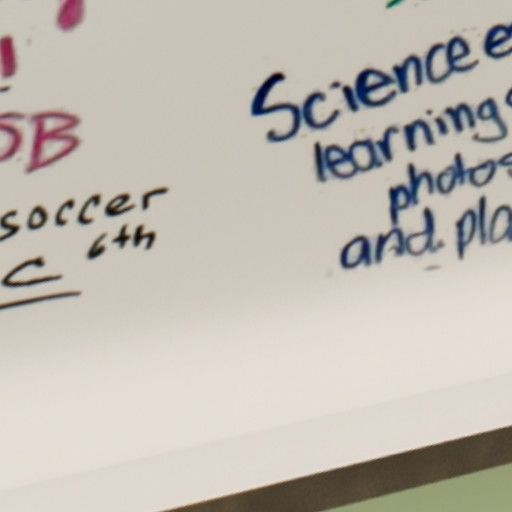 SB
soccer
C 6th
Science e
learning
photos
and pla